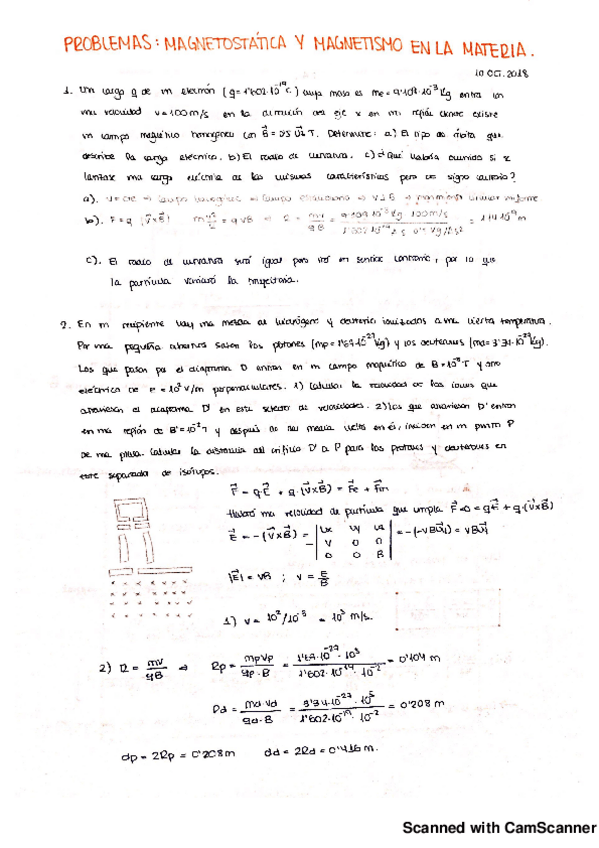 PROBLEMAS: MAGNETOSTÁTICA Y MAGNETISMO EN LA MATERIA.
10 OCT. 2018
1. Una carga q de un electrón (q = 1'602·10^-19 C) cuya masa es me = 9'109·10^-31 Kg entra con
una velocidad v = 100 m/s en la dirección del eje x en una región donde existe
un campo magnético homogéneo con B⃗ = 0'5 T. Determine: a) El tipo de órbita que
describe la carga eléctrica. b) El radio de curvatura. c) ¿Qué habría ocurrido si se
lanzase una carga eléctrica de las mismas características pero de signo contrario?
a). v = cte → campo → campo → v ⊥ B → movimiento circular uniforme
b). F = q (v⃗ x B⃗)
c). El radio de curvatura será igual pero irá en sentido contrario, por lo que
la partícula variará la trayectoria.
2. En un recipiente hay una mezcla de hidrógeno y deuterio ionizados a una cierta temperatura.
Por una pequeña abertura salen los protones (mp = 1'67·10^-27 kg) y los deuterones (md = 3'34·10^-27 kg).
Los que pasan por el diafragma D entran en un campo magnético de B = T y uno
eléctrico de E = 10² V/m perpendiculares. 1) Calcular la velocidad de los iones que
atraviesan el diafragma D' en este selector de velocidades. 2) Los que atraviesan D' entran
en una región de B' = 10^-2 T y después de dar media vuelta en él, inciden en un punto P
de una placa. Calcular la distancia del orificio D' a P para los protones y deuterones en
este separador de isótopos.
F⃗ = q·E⃗ + q·(v⃗xB⃗) = F⃗e + F⃗m
Habrá una velocidad de partícula que cumpla F⃗=0 = qE⃗ + q·(v⃗xB⃗)
E⃗ = -(v⃗xB⃗) = - | Ux Uy Uz | v 0 0 | 0 0 B | = -(-vBU⃗y) = vBU⃗y
|E⃗| = vB ; v = E/B
1) v = = m/s.
2) R = mv/qB ⇒ Rp = mp·vp/qp·B = = 0'104 m
Rd = md·vd/qd·B = = 0'208 m
dp = 2Rp = 0'208 m dd = 2Rd = 0'416 m.
Scanned with CamScanner